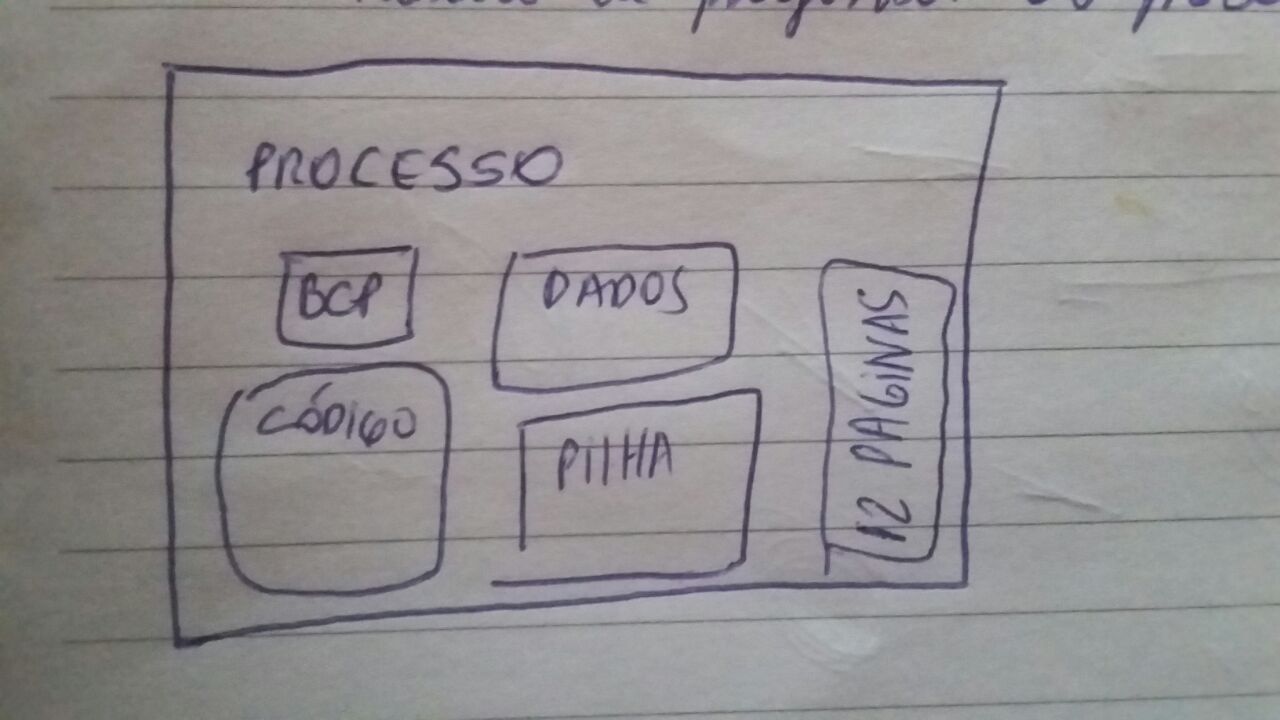 PROCESSO
BCP
DADOS
CÓDIGO
PILHA
12 PAGINAS